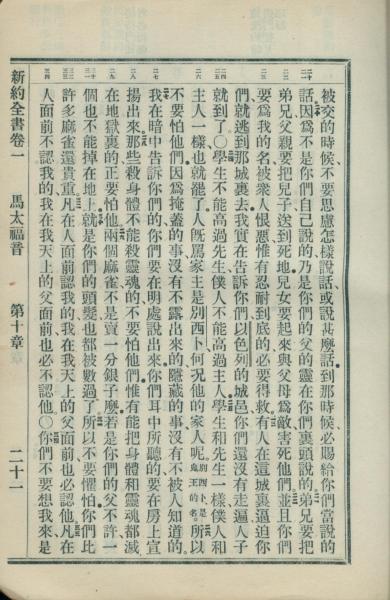 被交的時候、不要思慮怎樣說話、或說甚麼話、到那時候、必賜給你們當說的
話、因爲不是你們自己說的、乃是你們的父的靈在你們裏頭說的、弟兄要把
弟兄、父親要把兒子、送到死地、兒女要起來與父母爲敵、害死他們、並且你們
要爲我的名、被衆人恨惡、惟有忍耐到底的、必要得救、有人在這城裏逼迫你
們、就逃到那城裏去、我實在告訴你們、以色列的城邑、你們還沒有走遍、人子
就到了、〇學生不能高過先生、僕人不能高過主人、學生和先生一樣、僕人和
主人一樣、也就罷了、人旣罵家主是別西卜、何况他的家人呢、別西卜、是鬼王的名、所以
不要怕他們、因爲掩蓋的事、沒有不露出來的、隱藏的事、沒有不被人知道的、
我在暗中告訴你們的、你們要在明處說出來、你們耳中所聽的、要在房上宣
揚出來、那些殺身體不能殺靈魂的、不要怕他們、惟有能把身體和靈魂都滅
在地獄裏的、正要怕他、兩個麻雀、不是賣一分銀子麼、若是你們的父不許、一
個也不能掉在地上、就是你們的頭髮、也都被數過了、所以不要懼怕、你們比
許多麻雀還貴重、凡在人面前認我的、我在我天上的父面前也必認他、凡在
人面前不認我的、我在我天上的父面前、也必不認他、〇你們不要想我來是
新約全書卷一 馬太福音 第十章 二十一
二十
二一
二二
二三
二四
二五
二六
二七
二八
二九
三十
三一
三二
三三
三四